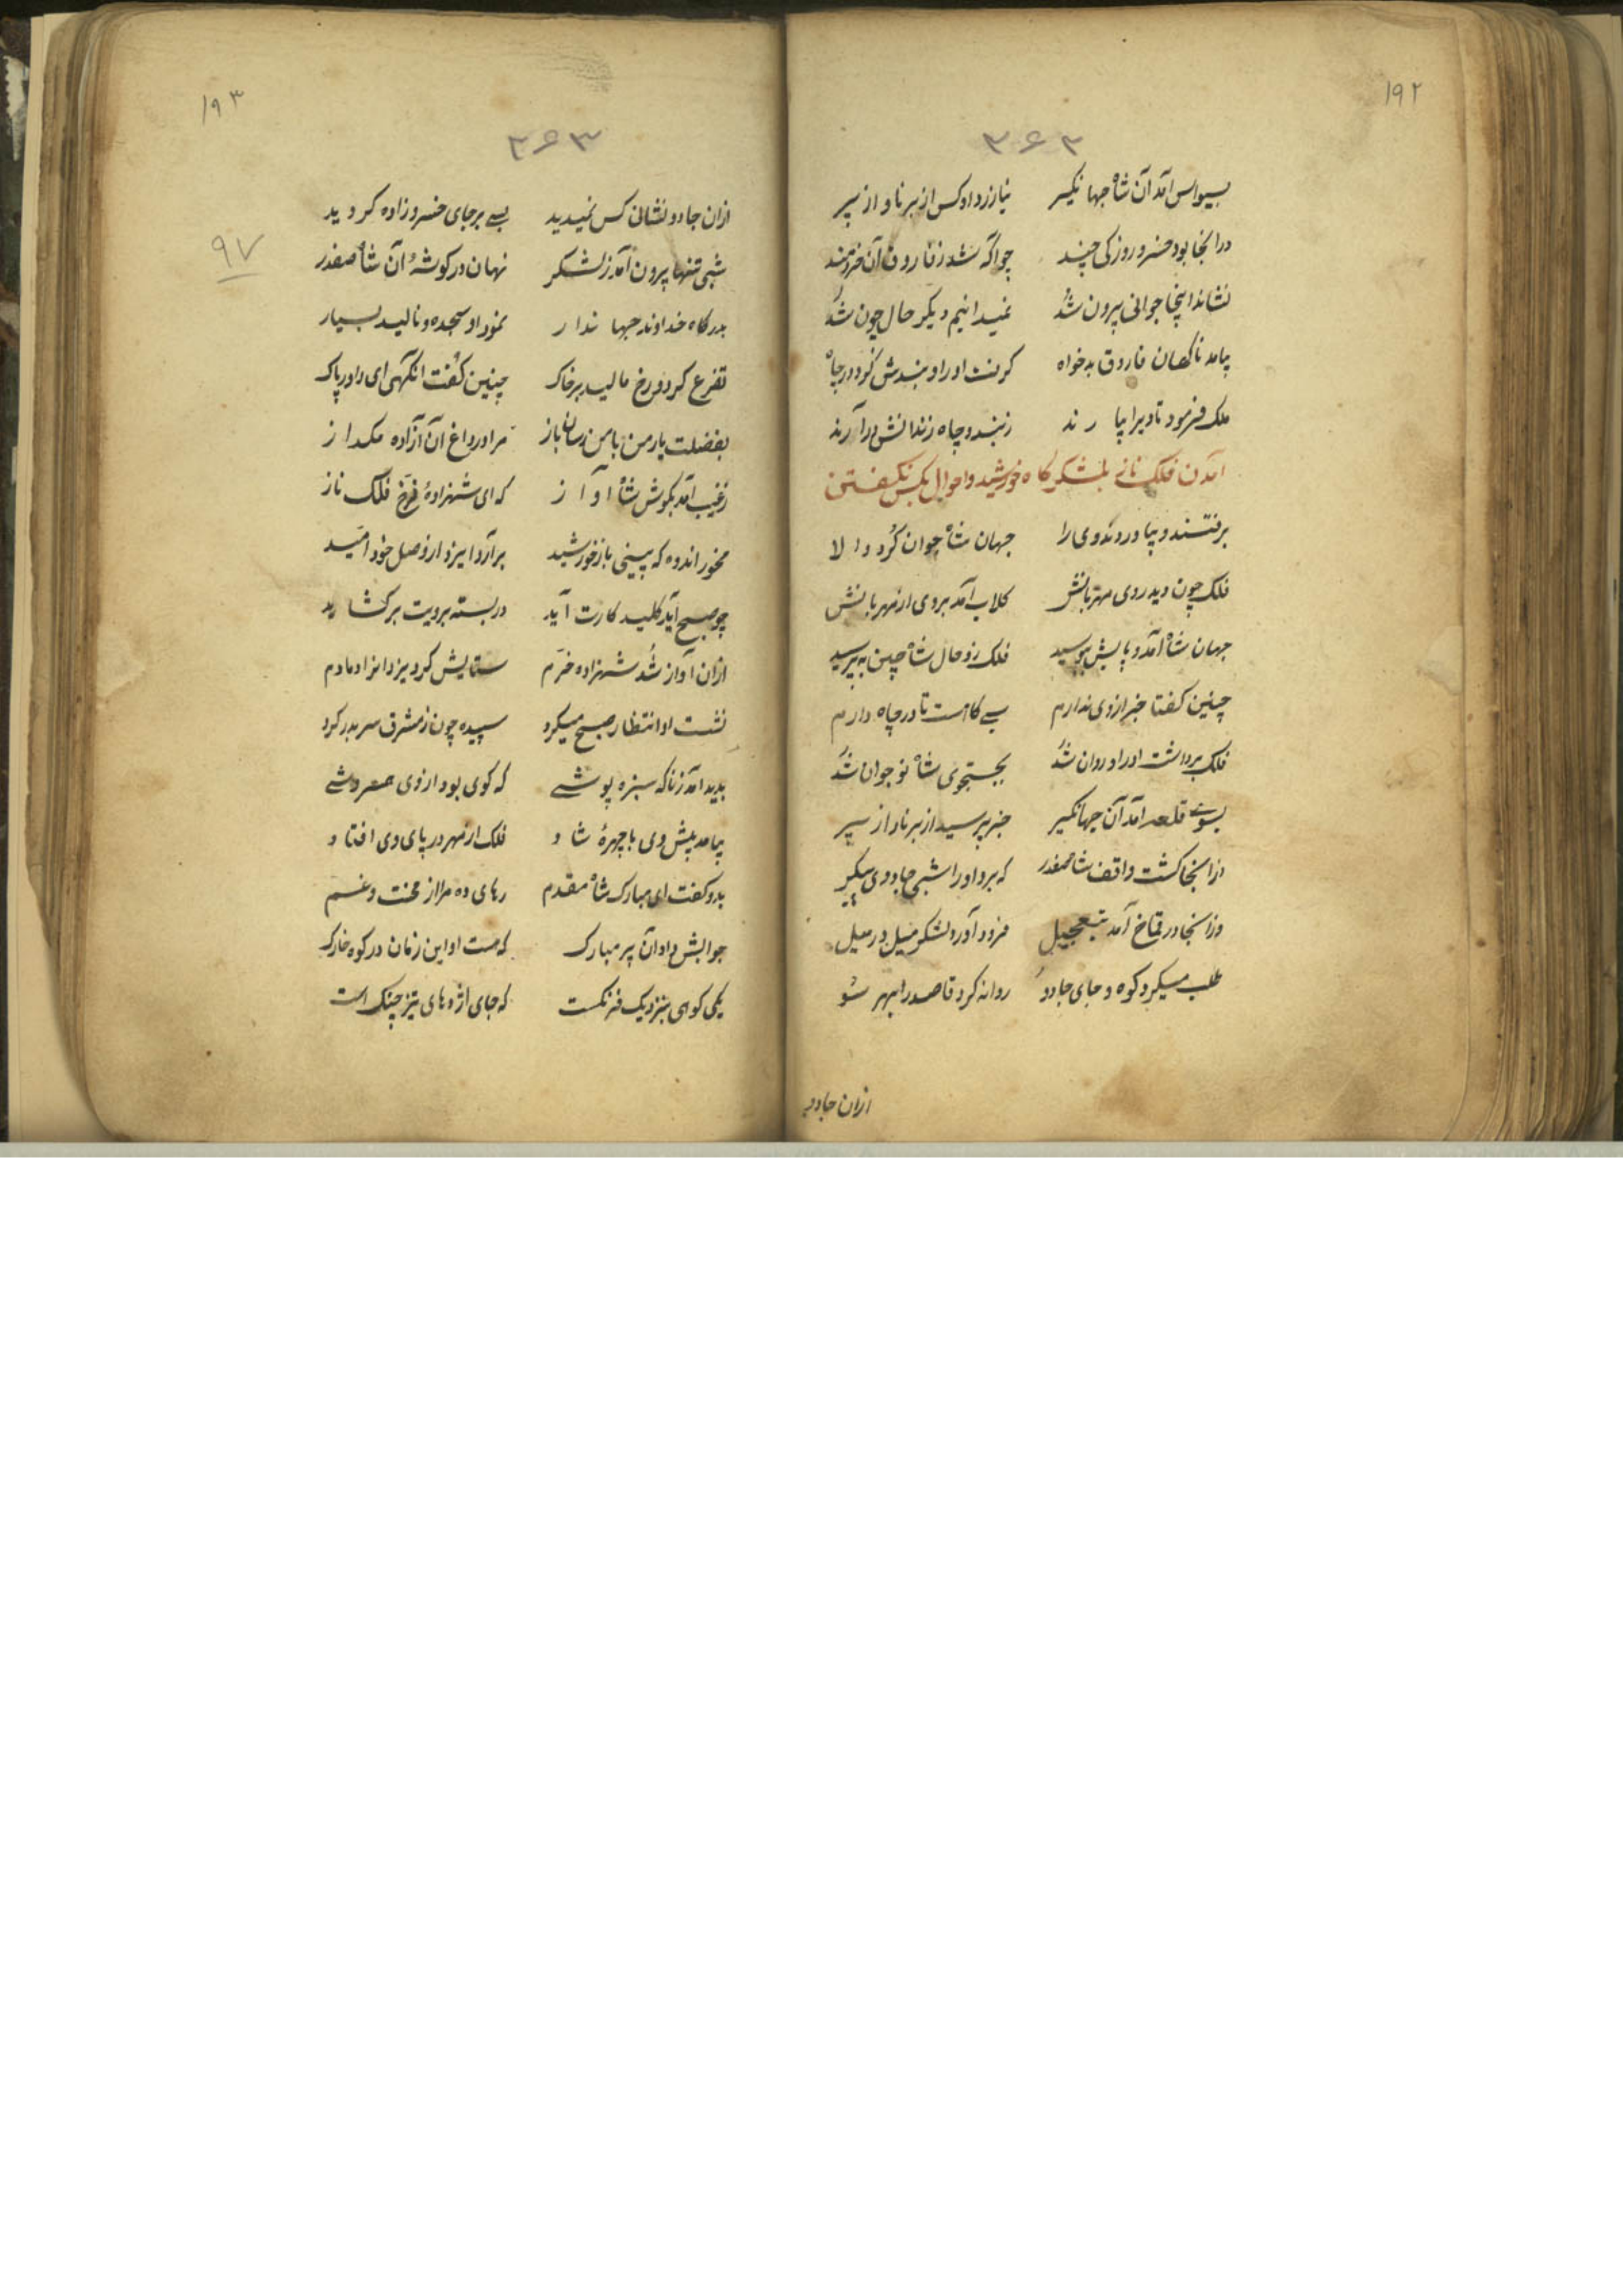 ۱۹۲
۳۶۲
بسیواس آمد آن شاه جهانکیر نیازرد او کس از برنا و از پیر
در انجا بود خسرو روزکی چند چو آکه شد ز فاروق آن خردمند
نشاند اینجا جوانی پرون شد نمیدانیم دیکر حال چون شد
پیامد ناکهان فاروق بدخواه کرفت او را و بندش کرد در چاه
ملک فرمود تا ویرا پیارند ز بند و چاه زندانش در آرند
آمدن فلک ناز بلشکرکاه خورشید و احوال بکس نکفتن
برفتند و پیاوردند وی را جهان شاه جوان کرد والا
فلک چون دید روی مهربانش کلاب آمد بروی از مهربانش
جهان شاه آمد و پایش ببوسید فلک زو حال شاه چین بپرسید
چنین کفتا خبر از وی ندارم بسی کاهست تا در چاه دارم
فلک برداشت او را و روان شد بجستجوی شاه نوجوان شد
بسوی قلعه آمد آن جهانکیر خبر پرسید از برنا و از پیر
از انجا کشت واقف شاه صفدر که برد او را شبی جادوی پیکر
وز انجا در قماخ آمد بتعجیل فرود آورد لشکر میل در میل
طلب میکرد کوه و جای جادو روانه کرد قاصد را بهر سو
ازان جادو
۱۹۳
۳۶۳
۹۷
ازان جادو نشانی کس نمیدید بسی بر جای خسروزاده کردید
شبی تنها پرون آمد ز لشکر نهان در کوشهٔ آن شاه صفدر
بدرکاه خداوند جهاندار نمود او سجده و نالید بسیار
تضرع کرد و رخ مالید بر خاک چنین کفت انکهی ای داور پاک
بفضلت یار من با من رسان باز مرا در داغ آن آزاده مکداز
ز غیب آمد بکوش شاه آواز که ای شهزادهٔ فرخ فلک ناز
مخور اندوه که بینی باز خورشید برآرد ایزد از وصل خود امید
چو صبح آید کلید کارت آید در بسته برویت برکشاید
ازان آواز شد شهزاده خرم ستایش کرد یزدانرا دمادم
نشست او انتظار صبح میکرد سپیده چون ز مشرق سر بدر کرد
بدید آمد ز ناکه سبزه پوشی که کوی بود از وی
پیامد پیش وی با چهرهٔ شاد فلک از مهر در پای وی افتاد
بدو کفت ای مبارک شاه مقدم رهای ده مرا از محنت و غم
جوابش داد آن پیر مبارک که هست او این زمان در کوه خارک
یکی کوهی بنزدیک فرنکست که جای اژدهای تیز چنک است